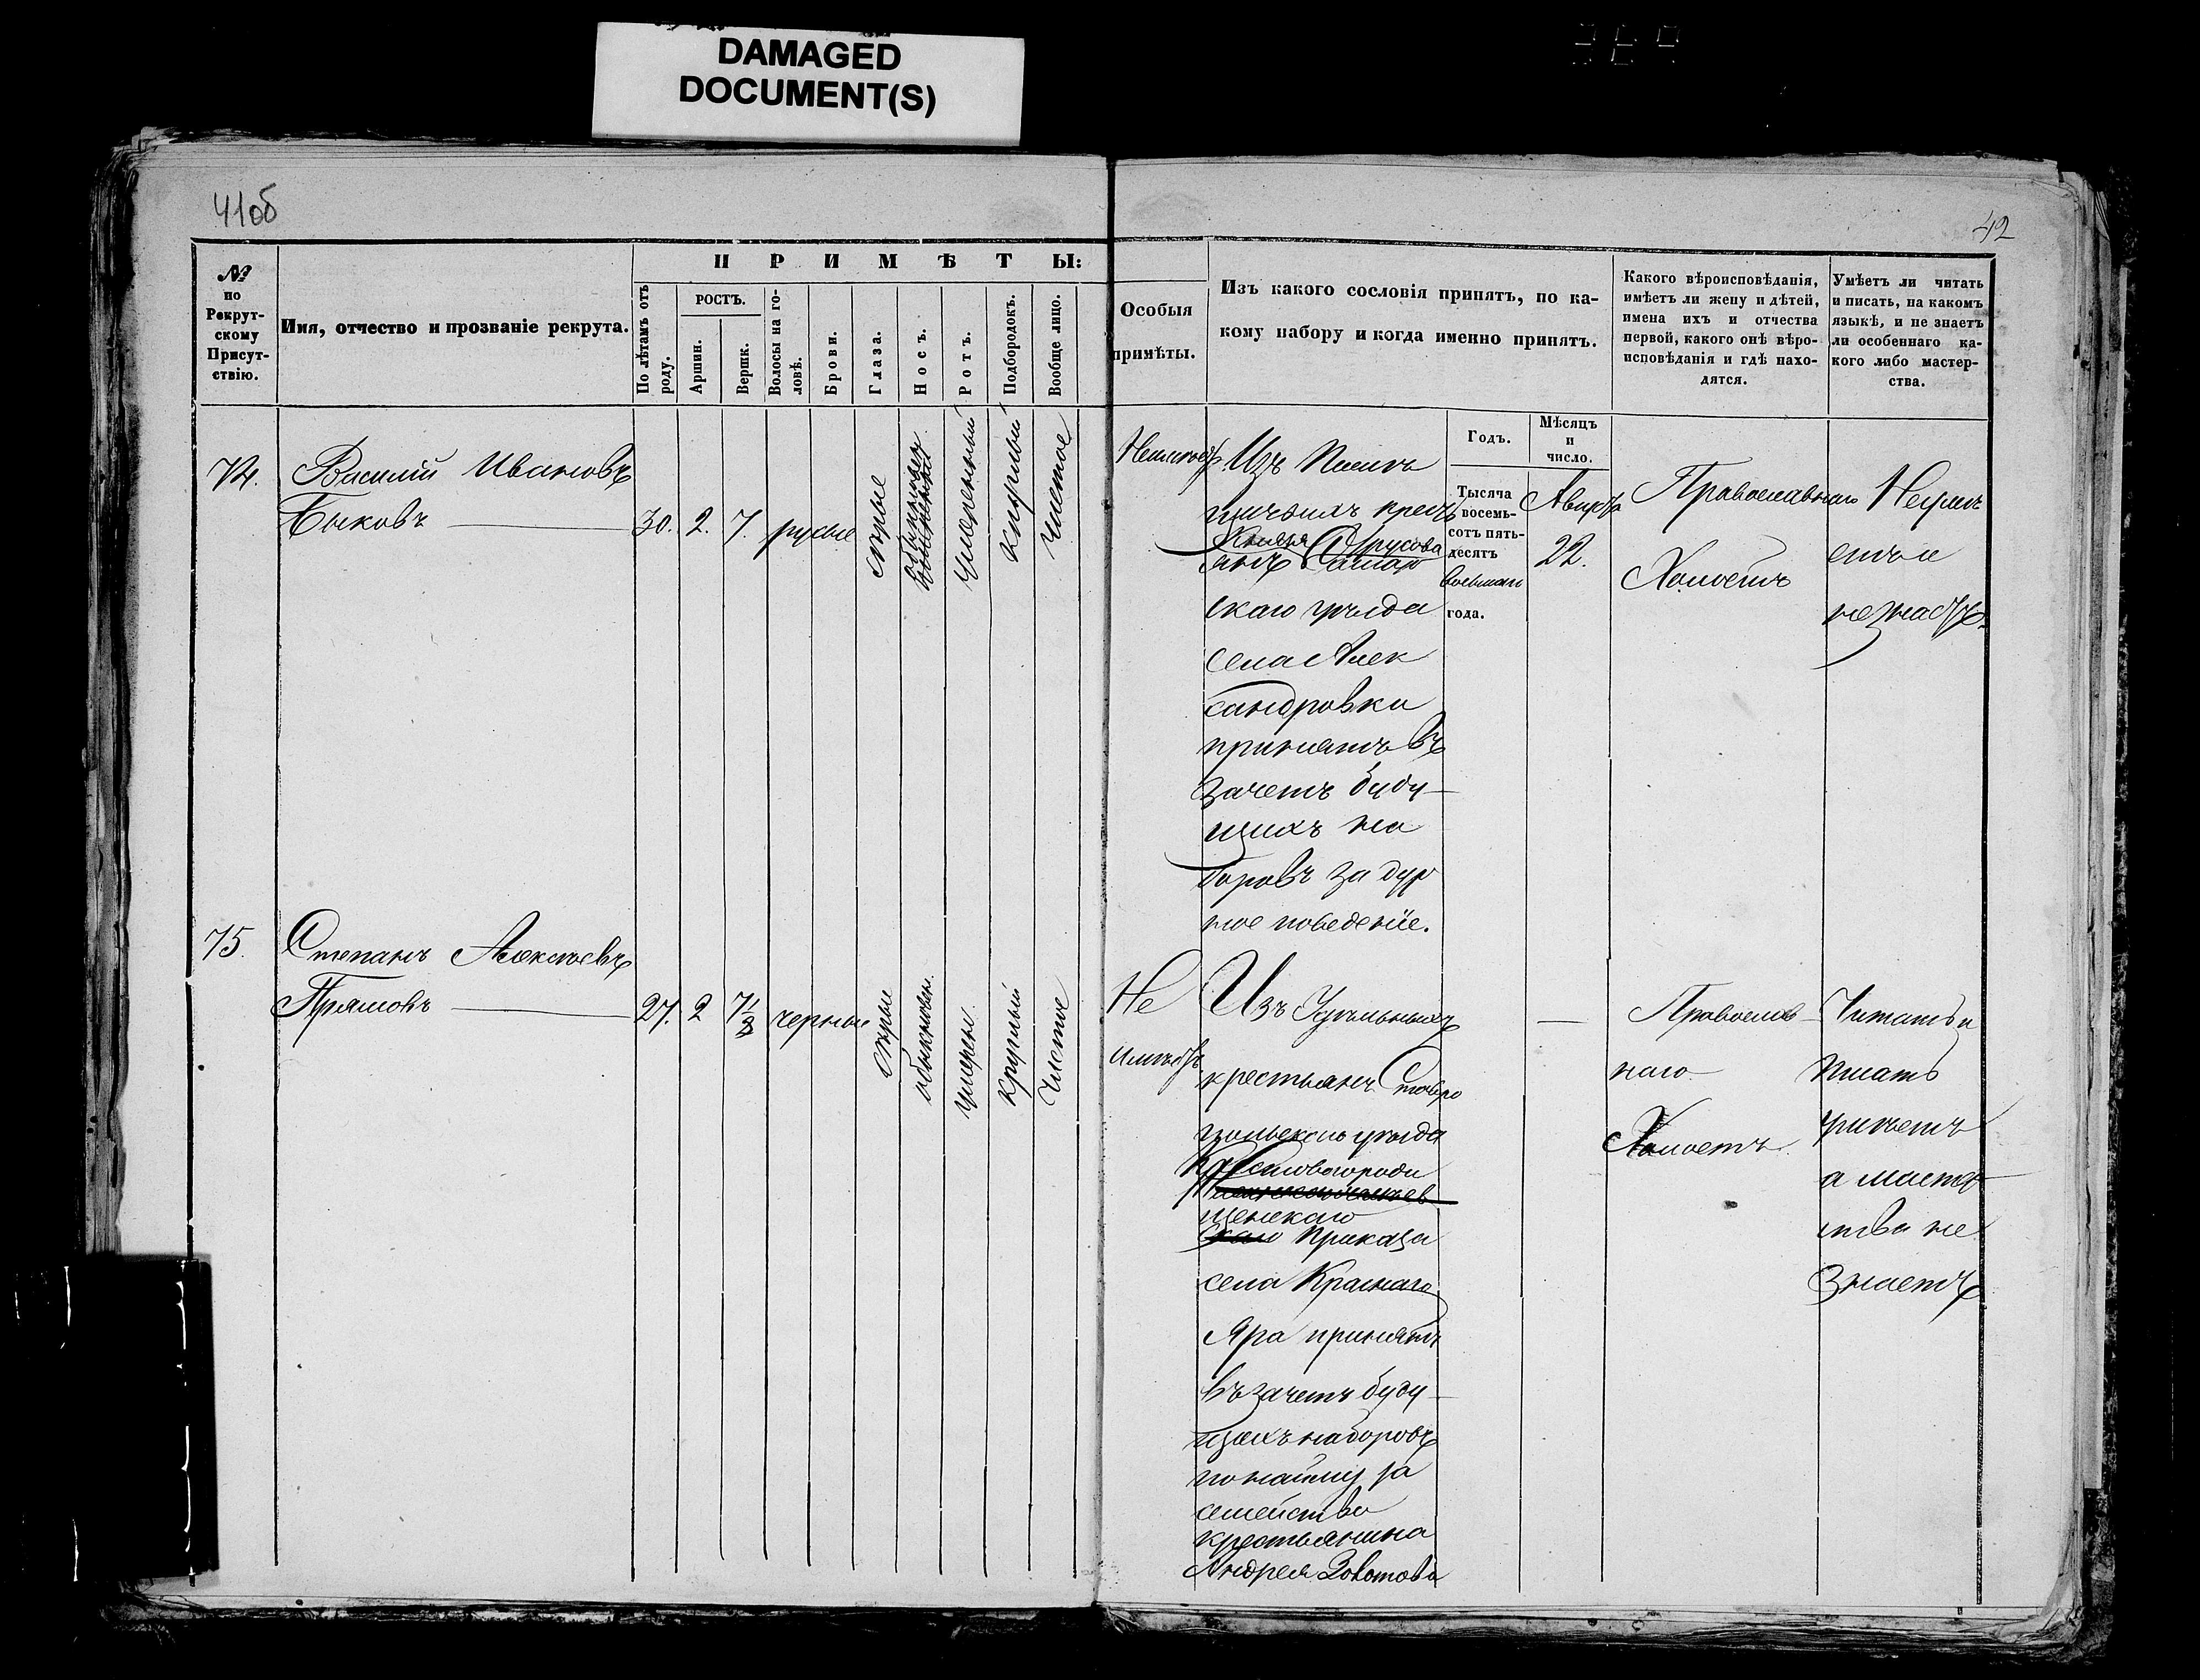 DAMAGED
DOCUMENT(S)
41об
42
№
по
Рекрут-
скому
Присут-
ствію.
Имя, отчество и прозваніе рекрута.
ПРИМѢТЫ:
По лѣтамъ отъ
роду.
РОСТЪ.
Аршин.
Вершк.
Волосы на го-
ловѣ.
Брови.
Глаза.
Носъ.
Ротъ.
Подбородокъ.
Вообще лицо.
Особыя
примѣты.
Изъ какого сословія принятъ, по ка-
кому набору и когда именно принятъ.
Какого вѣроисповѣданія,
имѣетъ ли жену и дѣтей,
имена ихъ и отчества
первой, какого онѣ вѣро-
исповѣданія и гдѣ нахо-
дятся.
Умѣетъ ли читать
и писать, на какомъ
языкѣ, и не знаетъ
ли особеннаго ка-
кого либо мастер-
ства.
Годъ.
Мѣсяцъ
и
число.
74.
Василій Ивановъ
Быковъ
30.
2.
7.
русые
сѣрые
обыкновен
умеренный
круглый
чистое
Неимеетъ
Изъ Помѣ
щичьихъ кресть
Князя
янъ Самар
скаго уѣзда
села Алек
сандровки
принятъ въ
зачетъ буду-
щихъ на
боровъ за дур
ное поведеніе.
Тысяча
восемь-
сотъ пять-
десятъ
восьмаго
года.
Августа
22.
Православнаго
Холостъ
Неграм
отъ и
не знаетъ.
75.
Степанъ Алексѣевъ
Прямовъ
27.
2
7 1/2
черные
сѣрые
обыкновен.
умерен.
круглый
чистое
Не
имѣетъ
Изъ Удѣльныхъ
крестьянъ Ставро
польскаго уѣзда
Новобогороди
щенскаго
Приказа
села Краснаго
Яра принятъ
въ зачетъ буду-
щихъ наборовъ
по найму за
семейство
крестьянина
Андрея Золотова
Православ-
наго
Холостъ.
Читать и
писать
умѣетъ
а мастер-
ства не
знаетъ